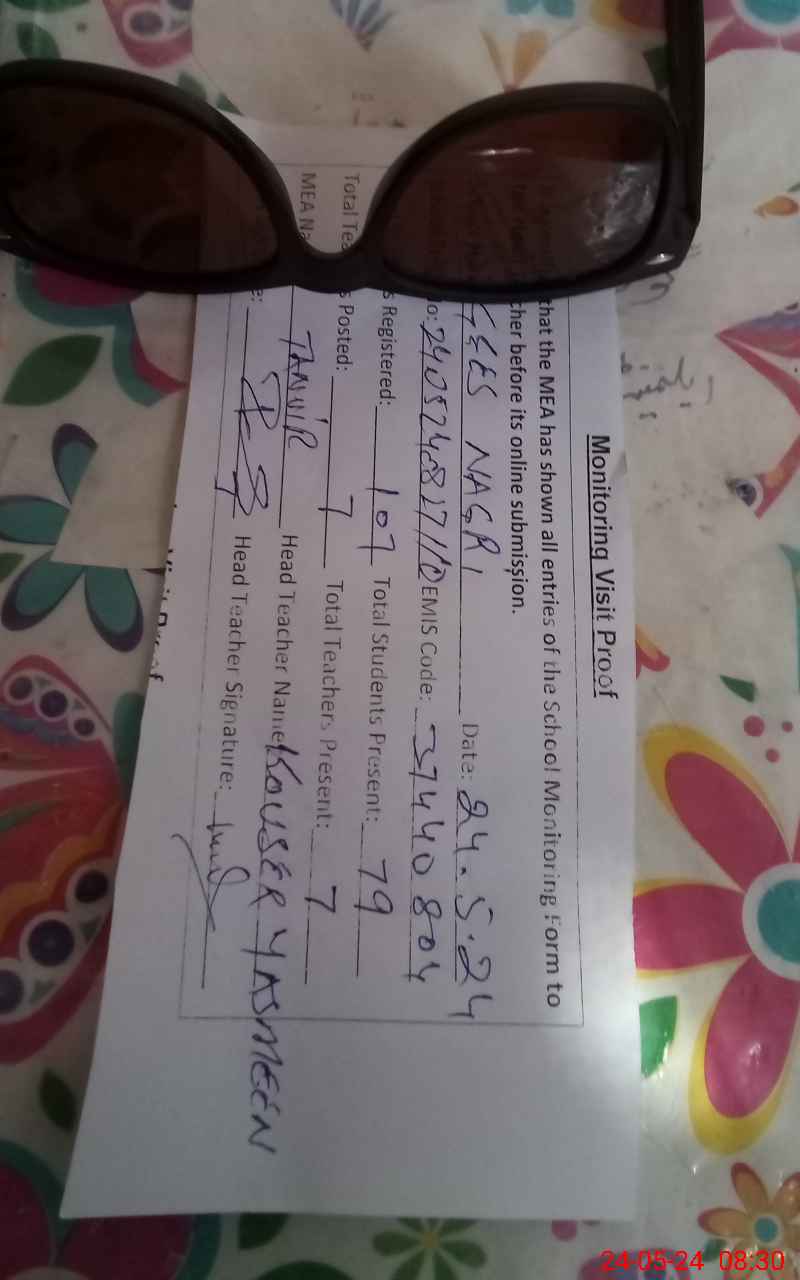 Monitoring Visit Proof
that the MEA has shown all entries of the School Monitoring Form to
cher before its online submission.
GGES NAGRI Date: 24.5.24
o: EMIS Code: 37440804
s Registered: 107 Total Students Present: 79
Total Tea s Posted: 7 Total Teachers Present: 7
MEA Na TANVIR Head Teacher Name KOUSER YASMEEN
e: Head Teacher Signature:
24-05-24 08:30